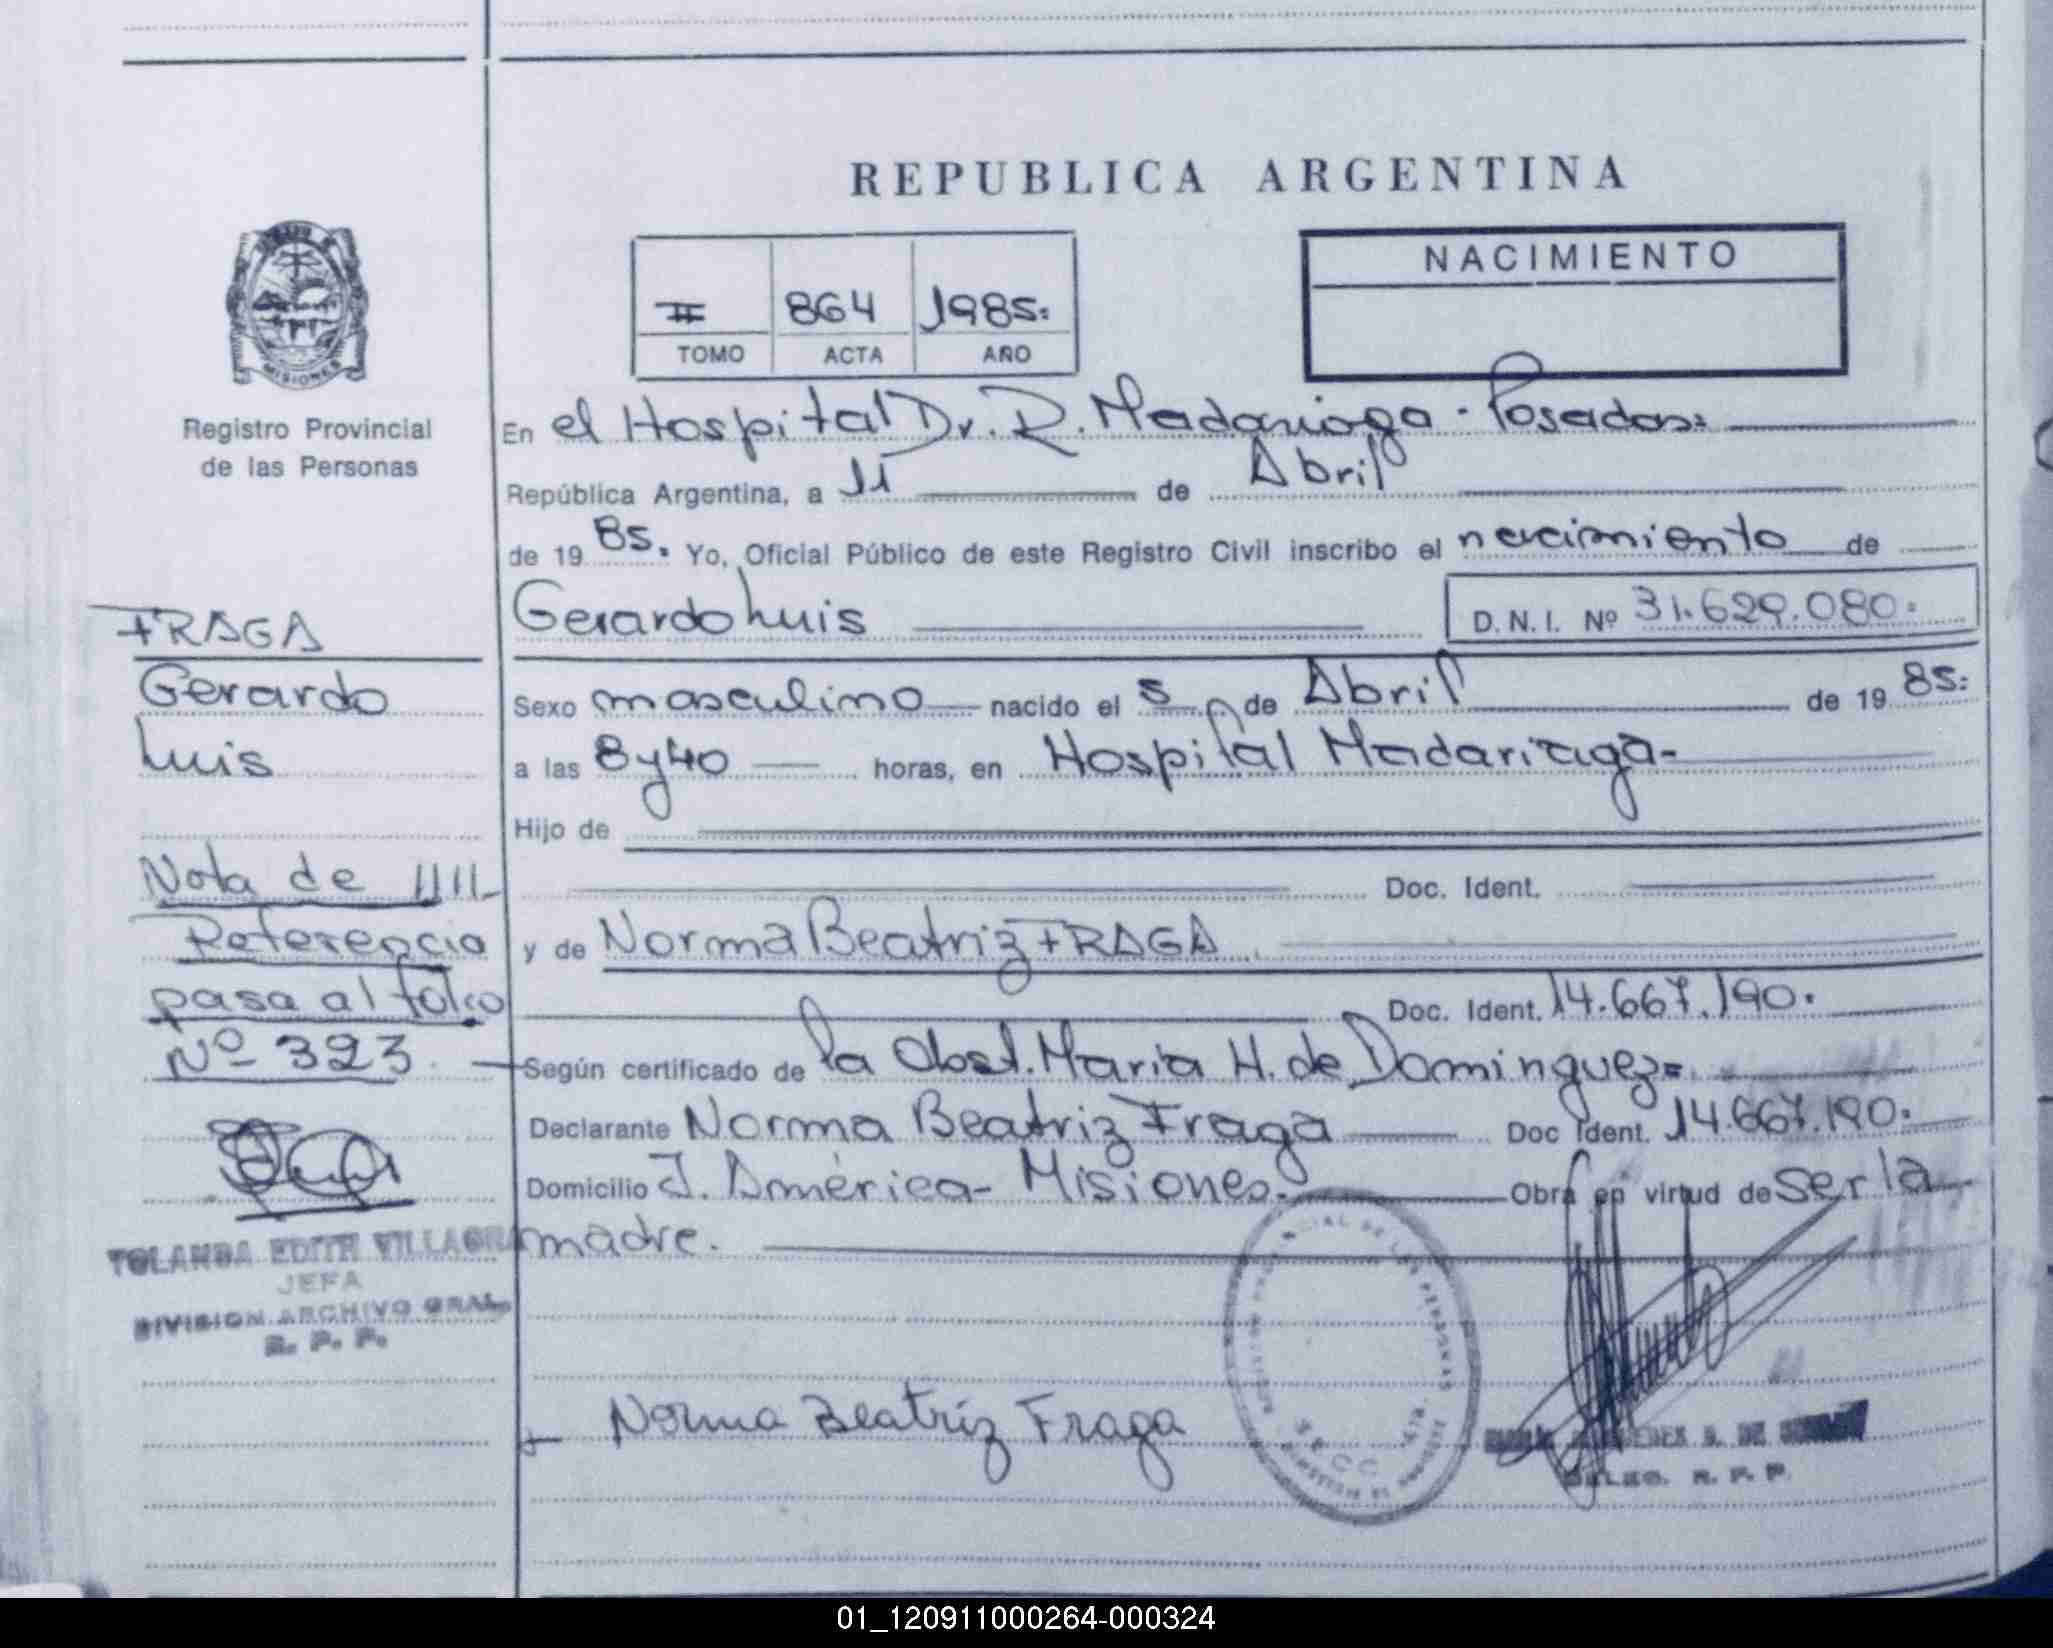 REPUBLICA ARGENTINA
NACIMIENTO
II 864 1985.
TOMO ACTA AÑO
MISIONES
Registro Provincial
de las Personas
En el Hospital Dr. R. Madariaga - Posadas.
República Argentina, a 11 de Abril
de 1985. Yo, Oficial Público de este Registro Civil inscribo el nacimiento de
Gerardo Luis D.N.I. Nº 31.629.080.
FRAGA
Gerardo
Luis
Sexo masculino nacido el 5 de Abril de 1985.
a las 8y40 horas, en Hospital Madariaga-
Hijo de
Doc. Ident.
y de Norma Beatriz FRAGA
Doc. Ident. 14.667.190.
Nota de
Referencia
pasa al folio
Nº 323.
Según certificado de la Obst. Maria H. de Dominguez
Declarante Norma Beatriz Fraga Doc Ident. 14.667.190.
Domicilio J. América - Misiones. Obra en virtud de ser la
madre.
YOLANDA EDITH VILLAGRA
JEFA
DIVISION ARCHIVO GRAL.
R. P. P.
Norma Beatríz Fraga
DELEG. R. P. P.
01_120911000264-000324